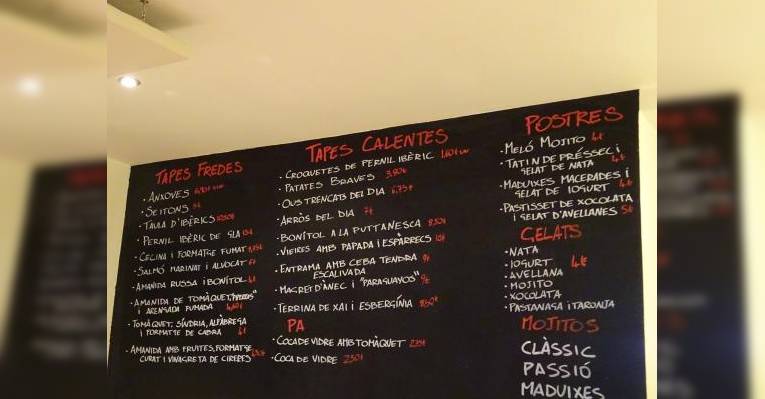 TAPES FREDES
· ANXOVES
· SEITONS
· TAULA D'IBÈRICS
· PERNIL IBÈRIC DE GLA
· CECINA I FORMATGE FUMAT
· SALMÓ MARINAT I ALVOCAT
· AMANIDA RUSSA I BONÍTOL
· AMANIDA DE TOMÀQUET,
I ARENGADA FUMADA
· TOMÀQUET, SÍNDRIA, ALFÀBREGA
I FORMATTE DE CABRA
· AMANIDA AMB FRUITES, FORMATGE
CURAT I VINAGRETA DE CIRERES
TAPES CALENTES
· CROQUETES DE PERNIL IBÈRIC
· PATATES BRAVES 3,80€
· OUS TRENCATS DEL DIA 6,75€
· ARRÒS DEL DIA 7€
· BONÍTOL A LA PUTTANESCA 8,50€
· VIEIRES AMB PAPADA I ESPÀRRECS 10€
· ENTRAMA AMB CEBA TENDRA 9€
ESCALIVADA
· MAGRET D'ÀNEC I "PARAGUAYOS" 9€
· TERRINA DE XAI I ESBERGÍNIA
PA
· COCA DE VIDRE AMB TOMÀQUET
· COCA DE VIDRE 2,50€
POSTRES
· MELÓ MOJITO 4€
· TATIN DE PRÉSSEC I
GELAT DE NATA 4€
· MADUIXES MACERADES I
GELAT DE IOGURT 4€
· PASTISSET DE XOCOLATA
I GELAT D'AVELLANES 5€
GELATS
· NATA
· IOGURT 4€
· AVELLANA
· MOJITO
· XOCOLATA
· PASTANAGA I TARONJA
MOJITOS
CLÀSSIC
PASSIÓ
MADUIXES